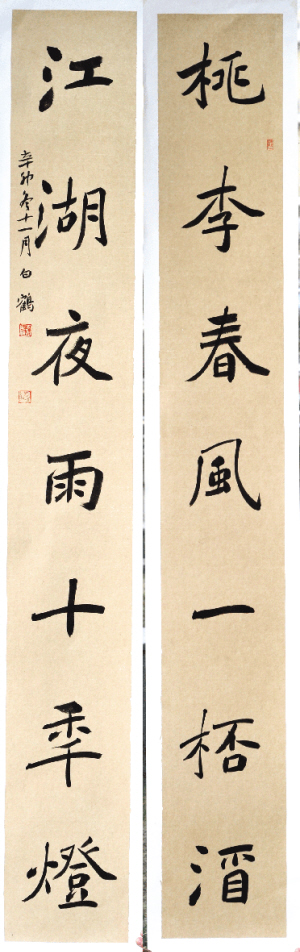 桃李春風一桮酒
江湖夜雨十年燈
辛卯冬十一月白鶴